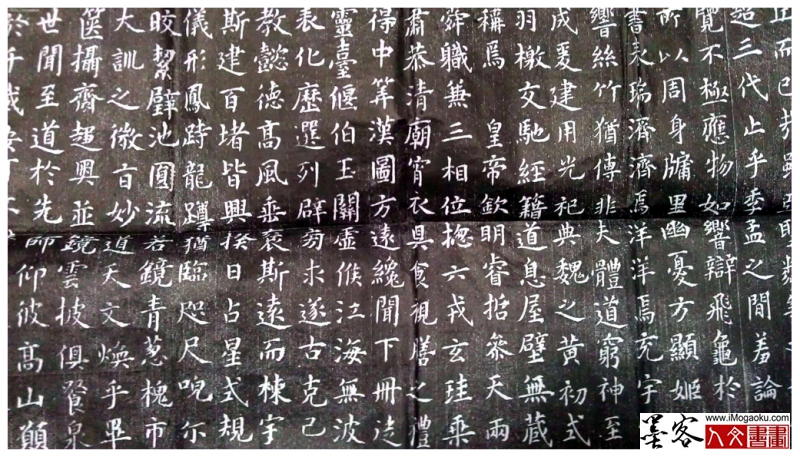 丘而已哉
超三代止乎季孟之閒羞論
覽不極應物如響辯飛龜於
所以周身牖里幽憂方顯姬
書表瑞濟濟焉洋洋焉充宇
響絲竹猶傳非夫體道窮神至
成爰建用光祀典魏之黃初式
羽檄交馳經籍道息屋壁無藏
稱焉 皇帝欽明睿哲參天兩
舜職兼三相位揔六戎玄珪乘
肅恭清廟宵衣具食視膳之禮
得中筭漢圖方遠纔聞下冊徒
靈臺偃伯玉關虛候江海無波
表化歷選列辟旁求遂古克己
教懿德高風垂裒斯遠而棟宇
斯建百堵皆興揆日占星式規
儀形鳳跱龍蹲猶臨咫尺唲尔
皎絜璧池圓流若鏡青葱槐市
大訓之微旨妙道天文煥乎畢
篋攝齊趨奧並鏡雲披俱餐泉
世聞至道於先師仰彼高山願
於千載安
www.iMogaoku.com
墨客
人文書畫